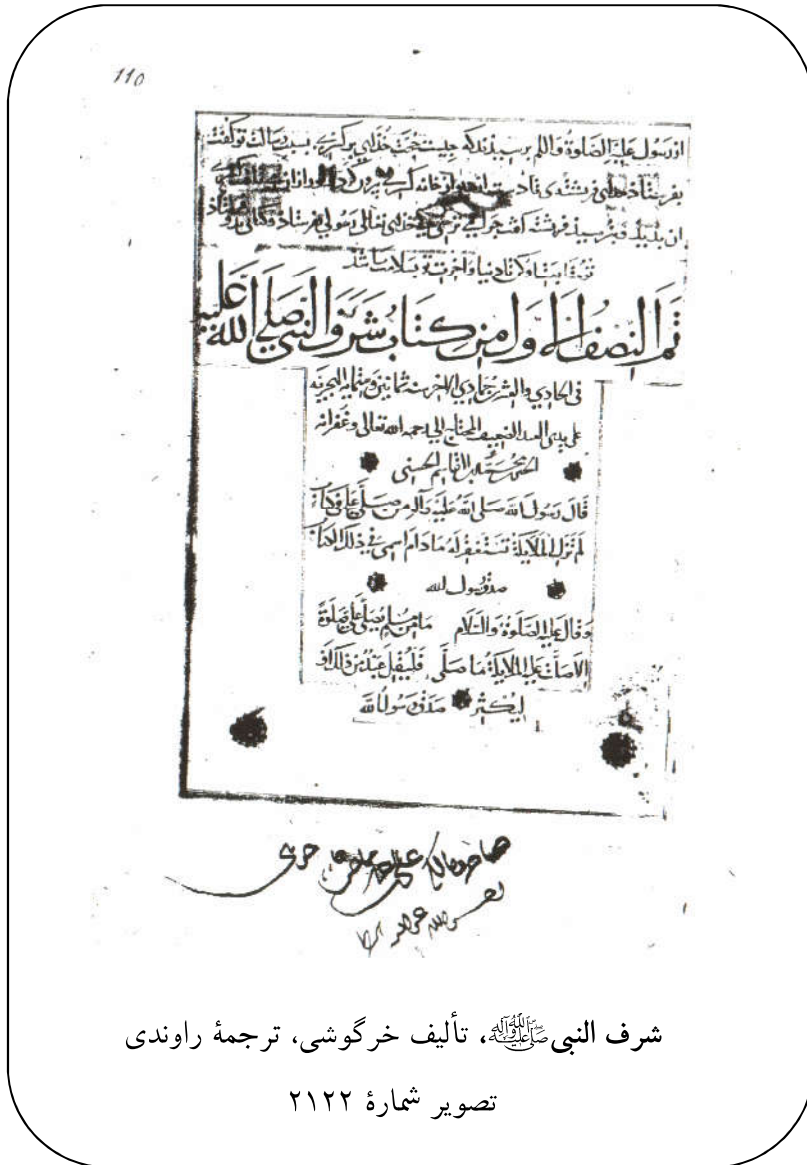 110
از رسول علیه الصلوة والسلم برسیدند که چیست حجت خدای بر کسری بسبب رسالت تو گفت
بفرستاذ خدای فرشته‌ی تا دست از دیوار خانه کسری برون کرد
ان بدید بترسید فرشته گفت چرا می ترسی خدای تعالی رسولی بفرستاذ و کتابی بدو
دنیا و آخرت تو بسلامت باشد
تم النصف الاول من كتاب شرف النبي صلى الله عليه
في الحادي والعشر جمادي الاخر سنة ثمانين و الهجرية
على يدى العبد الضعيف المحتاج الي رحمة الله تعالى وغفرانه
محمد بن القاسم الحسني
قال رسول الله صلى الله عليه وآله من صلى علي في كتاب
لم تزل الملايكة تستغفر له ما دام اسمي في ذلك الكتاب
صدق رسول الله
وقال عليه الصلوة والسلام ما من مسلم يصلي علي صلوة
الا صلت عليه الملايكة ما صلى فليقل عبد من ذلك او
ليكثر صدق رسول الله
شرف النبی ﷺ، تألیف خرگوشی، ترجمۀ راوندی
تصویر شمارۀ ۲۱۲۲